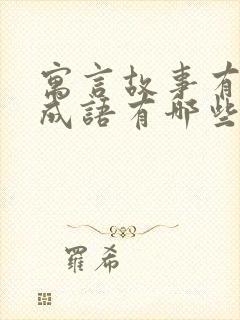 寓言故事有
成語有哪些
羅希